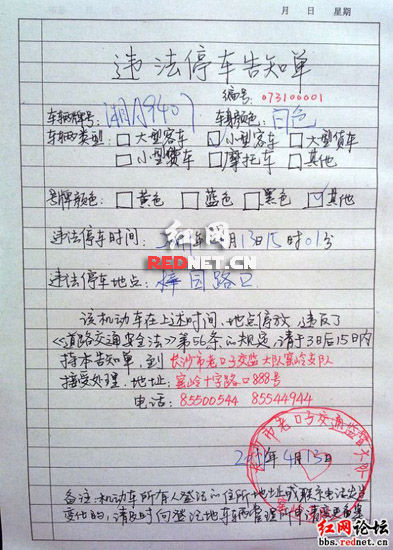 月 日 星期
违法停车告知单
编号: 073100001
车辆牌号: 湘A9407 车身颜色: 白色
车辆类型: 大型客车 小型客车 大型货车
小型货车 摩托车 其他
号牌颜色: 黄色 蓝色 黑色 其他
违法停车时间: 年 月13日15时01分
违法停车地点: 樟园路口
红网
REDNET.CN
该机动车在上述时间、地点停放,违反了
《道路交通安全法》第56条的规定,请于3日后15日内
持本告知单,到长沙市老口子交监大队窑岭支队
接受处理。地址:窑岭十字路口888号
电话: 85500544 85544944
市老口子交通监督大队
4月13日
备注:机动车所有人登记的住所地址或联系电话发生
变化的,请及时向登记地车辆管理所申请变更备案
红网论坛
bbs.rednet.cn